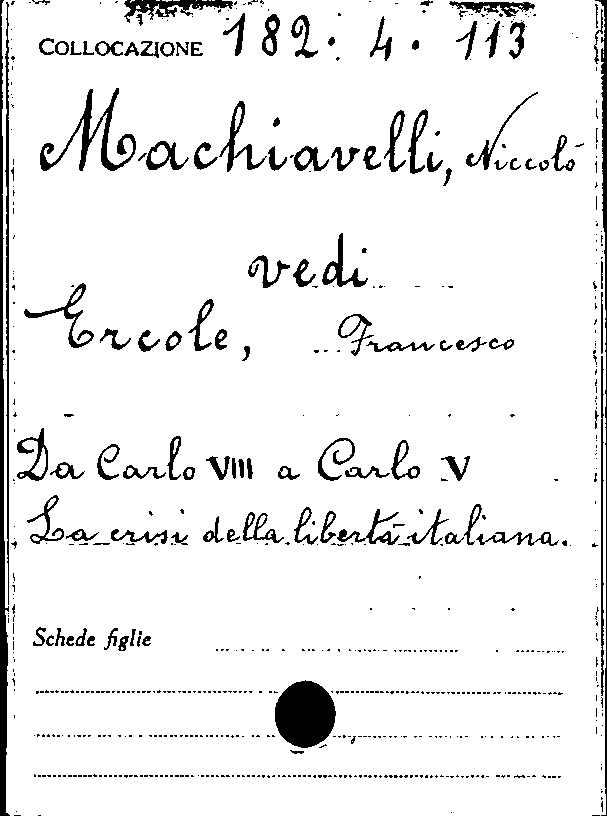 COLLOCAZIONE 182. 4. 113
Machiavelli, Niccolò
vedi
Ercole, Francesco
Da Carlo VIII a Carlo V
La crisi della libertà italiana.
Schede figlie